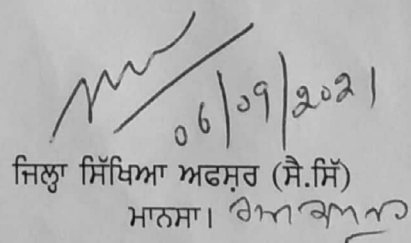 06/09/2021
ਜਿਲ੍ਹਾ ਸਿੱਖਿਆ ਅਫਸ਼ਰ (ਸੈ.ਸਿੱ)
ਮਾਨਸਾ।